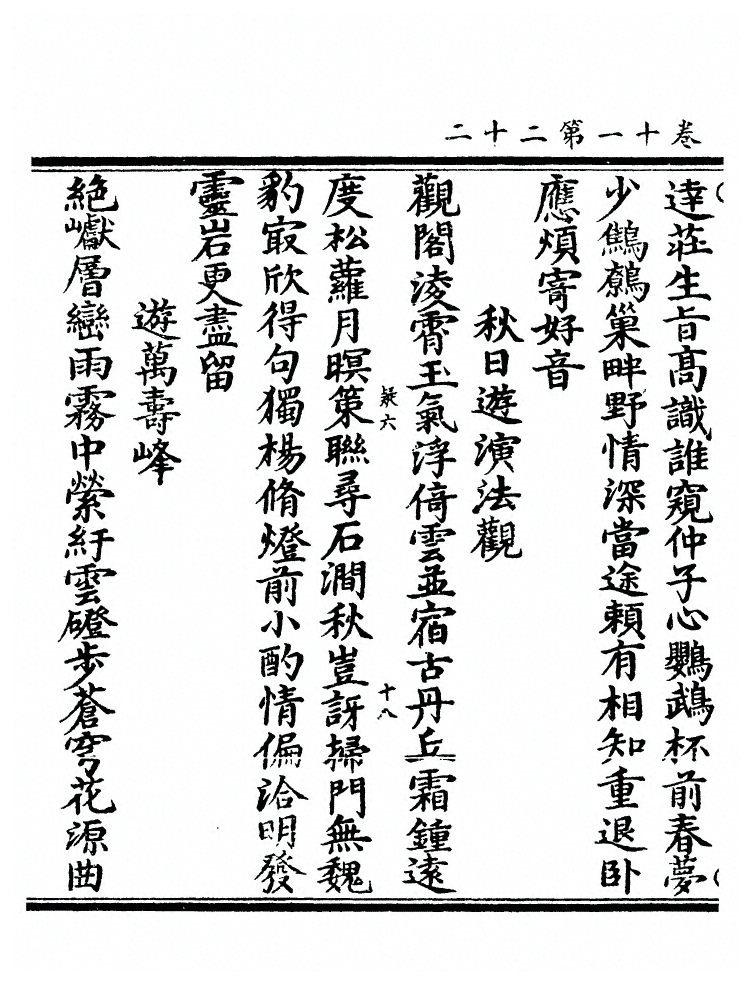 卷十一第二十二
達莊生旨高識誰窺仲子心鸚鵡杯前春夢
少鷦鷯巢畔野情深當途賴有相知重退卧
應煩寄好音
秋日遊演法觀
觀閣淩霄玉氣浮倚雲並宿古丹丘霜鐘遠
疑六
十八
度松蘿月暝策聯尋石澗秋豈訝掃門無魏
豹㝡欣得句獨楊脩燈前小酌情偏洽明發
靈岩更盡留
遊萬壽峰
絶巘層巒雨霧中縈紆雲磴步蒼穹花源曲